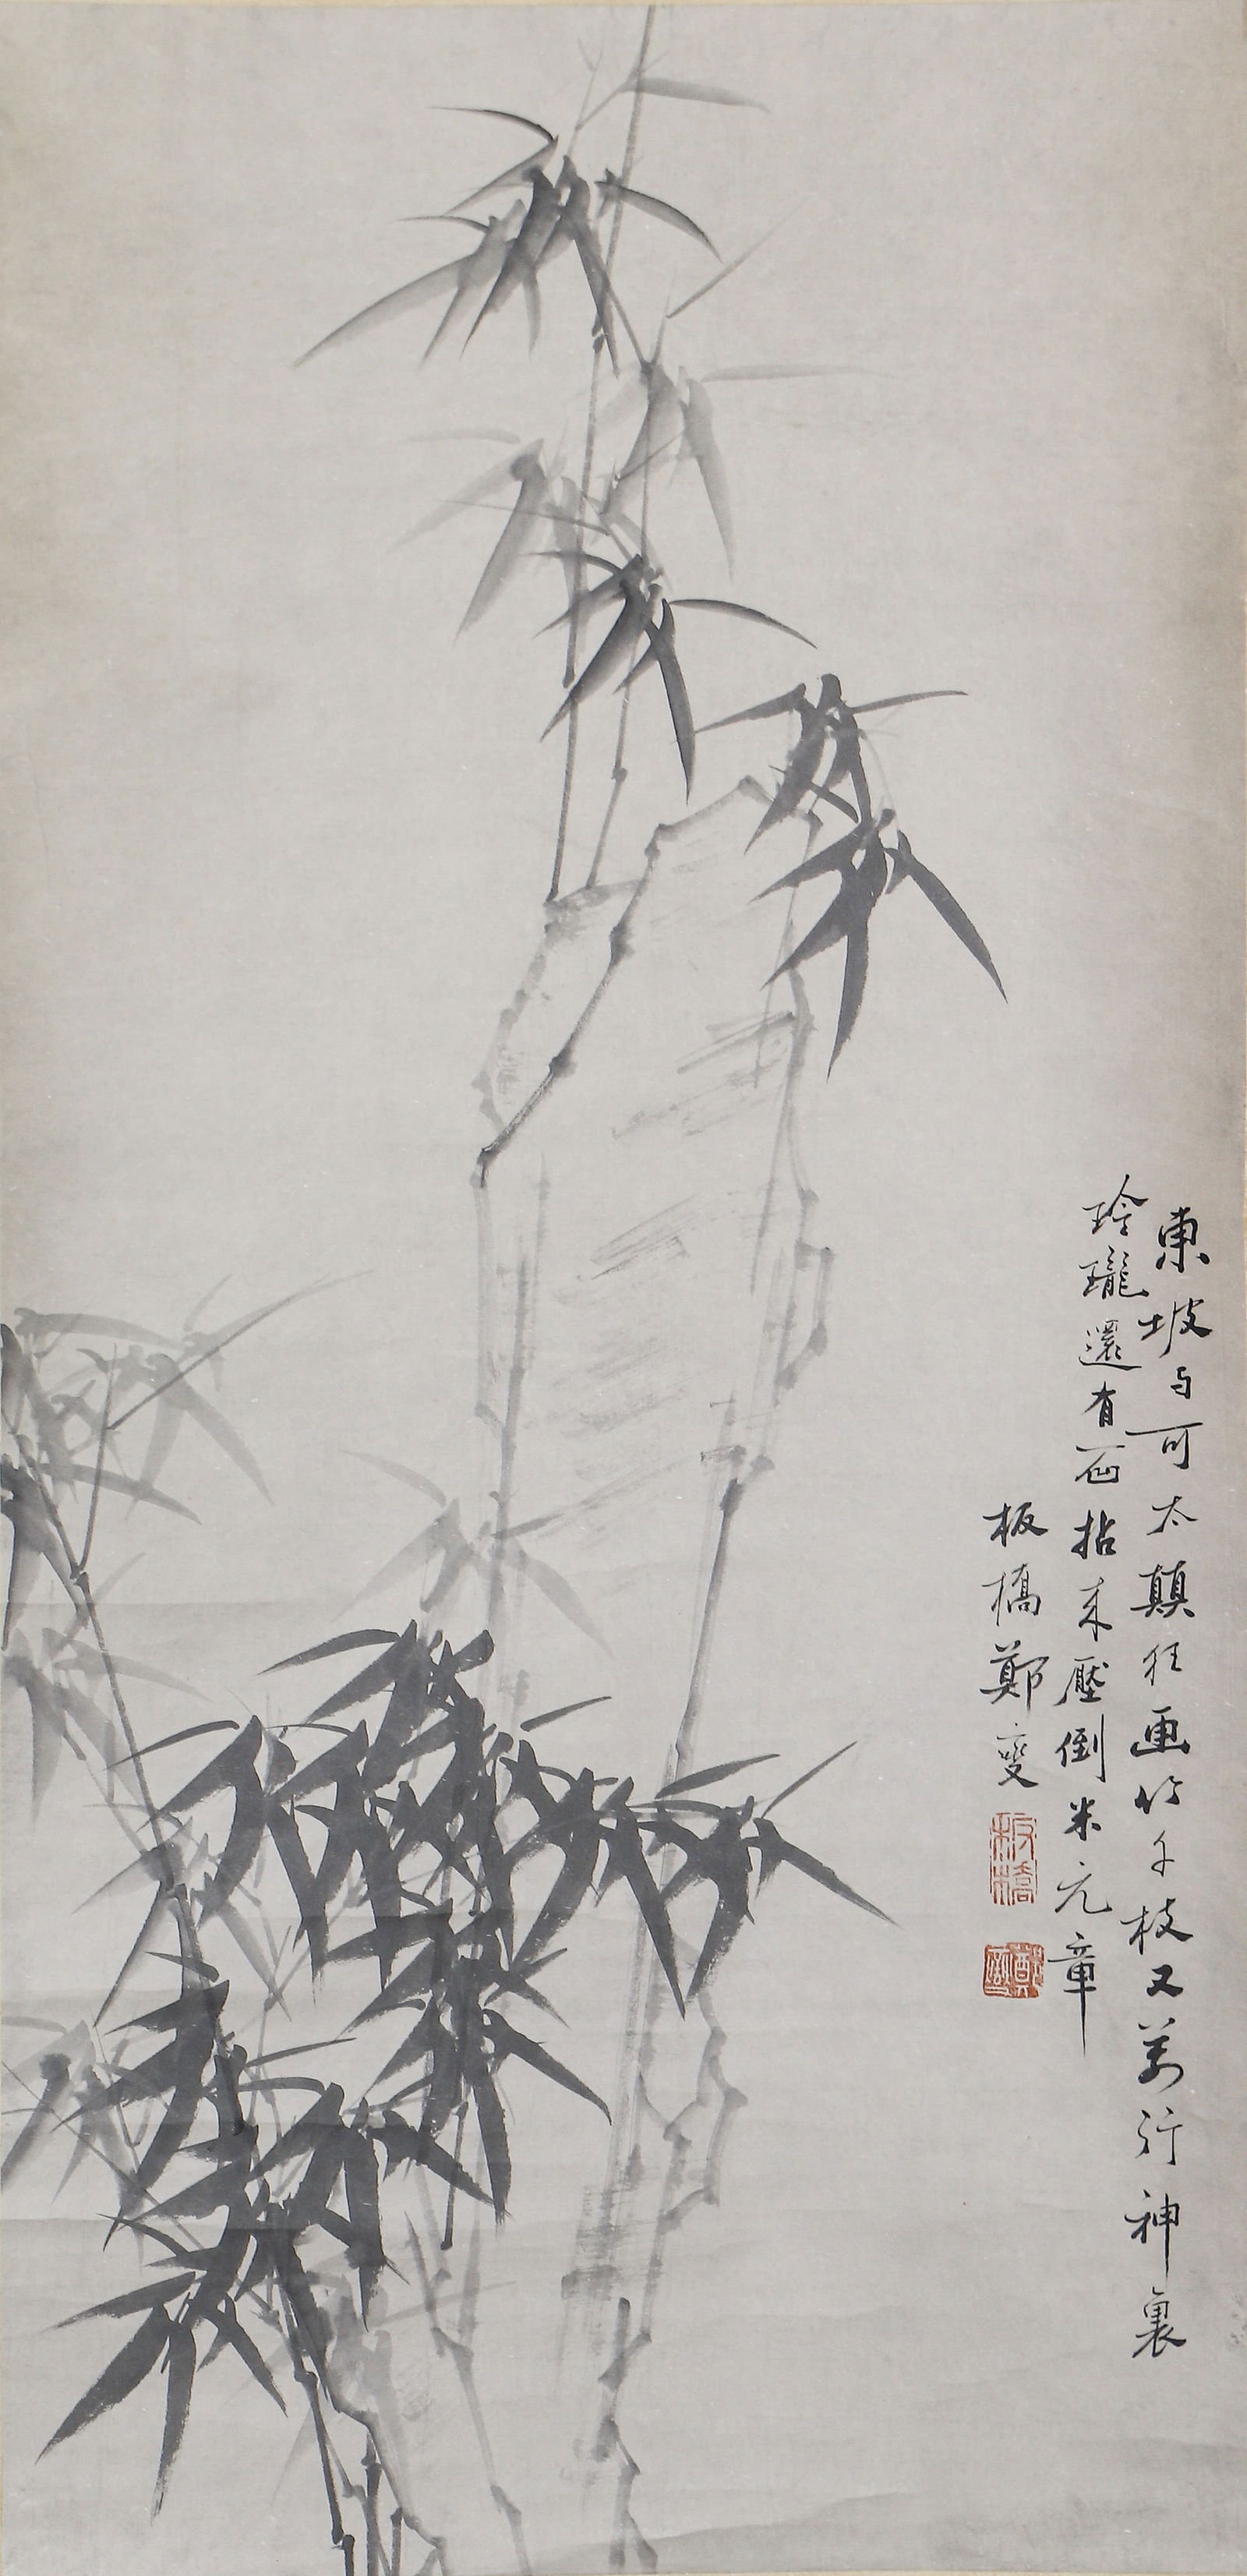 東坡与可太顛狂画竹千枝又萬行神裏
玲瓏還有石拈来壓倒米元章
板橋鄭燮
板橋